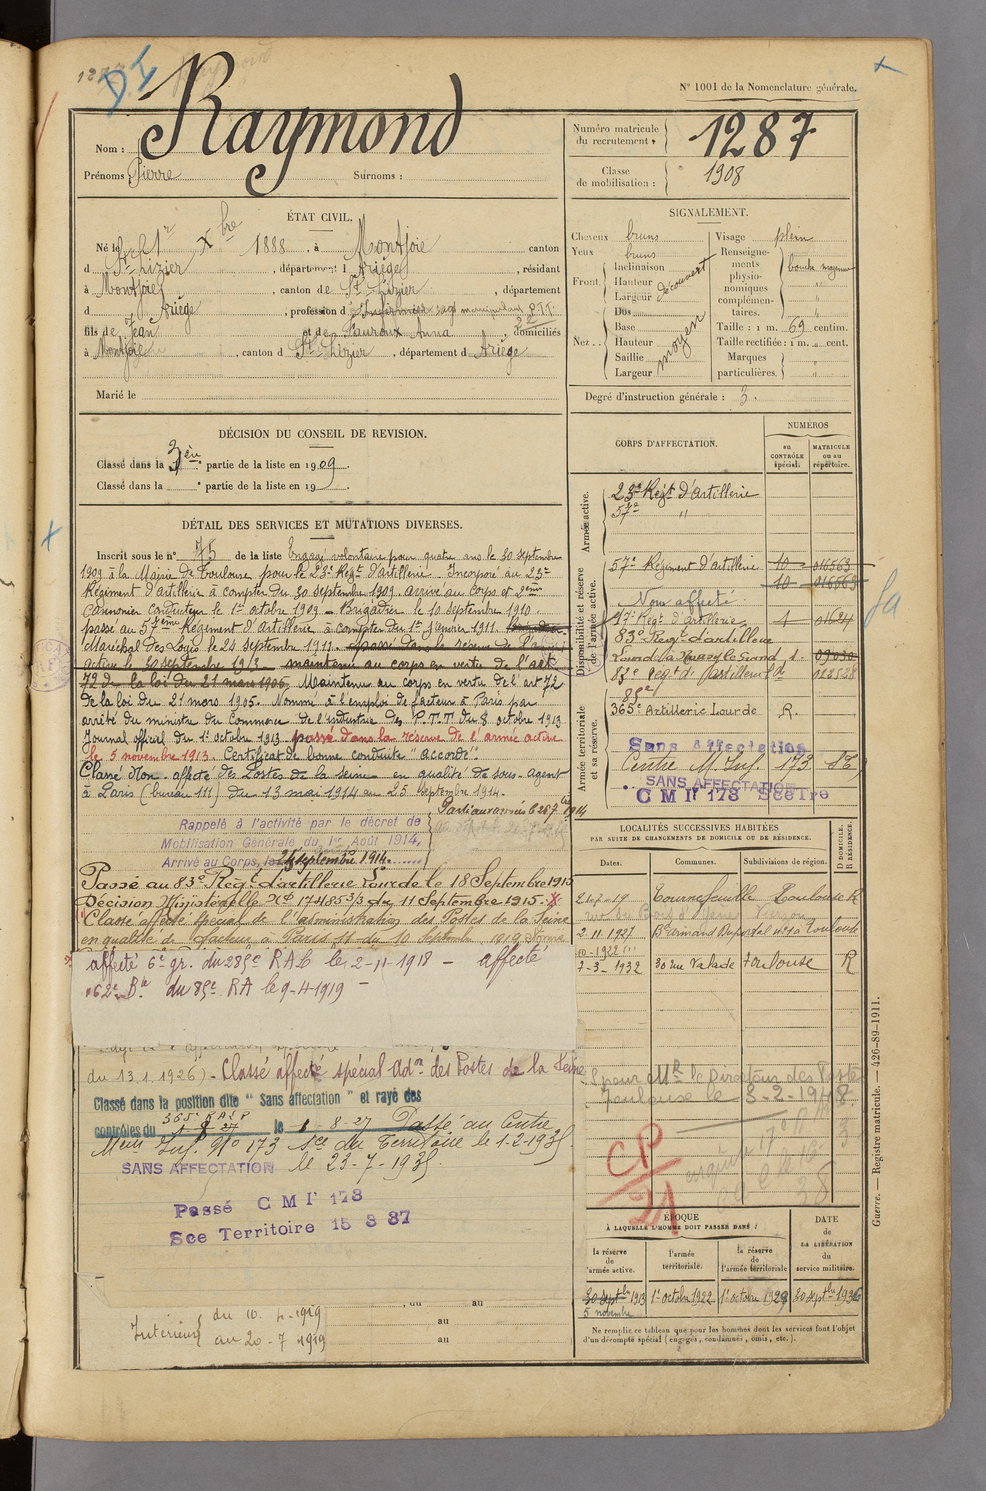 DI
N° 1001 de la Nomenclature générale.
Nom : Raymond
Prénoms : Pierre Surnoms :
Numéro matricule du recrutement : 1287
Classe de mobilisation : 1908
ÉTAT CIVIL.
Né le 21 Xbre 1888, à Montjoie canton
d St-Lizier, département d Ariège, résidant
à Montjoie, canton de St-Lizier, département
d Ariège, profession d
fils de Jean et de Anna, domiciliés
à Montjoie, canton d St-Lizier, département d Ariège
Marié le
SIGNALEMENT.
Cheveux bruns
Yeux bruns
Front. Inclinaison
Hauteur découvert
Largeur
Nez. Dos
Base
Hauteur moyen
Saillie
Largeur
Visage plein
Renseignements physionomiques complémentaires. bouche moyenne
Taille : 1 m. 69 centim.
Taille rectifiée : 1 m. " cent.
Marques particulières. "
Degré d'instruction générale : 3.
DÉCISION DU CONSEIL DE REVISION.
Classé dans la 3e partie de la liste en 1909.
Classé dans la e partie de la liste en 19 .
DÉTAIL DES SERVICES ET MUTATIONS DIVERSES.
Inscrit sous le n° 75 de la liste Engagé volontaire pour quatre ans le 30 septembre
1909 à la Mairie de Toulouse pour le 23e Régt d'artillerie. Incorporé au 23e
Régiment d'Artillerie à compter du 30 septembre 1909. arrivé au corps et 2ème
Canonnier conducteur le 1er octobre 1909. Brigadier le 10 septembre 1910.
passé au 57ème Régiment d'Artillerie à compter du 1er janvier 1911.
Maréchal des Logis le 24 septembre 1911. passé dans la réserve de l'armée
active le 30 septembre 1913. maintenu au corps en vertu de l'art
72 de la loi du 21 mars 1905. Maintenu au corps en vertu de l'art 72
de la loi du 21 mars 1905. Nommé à l'emploi de facteur à Paris par
arrêté du ministre du Commerce de l'industrie des P.T.T. du 8 octobre 1913
Journal officiel du 1er octobre 1913 passé dans la réserve de l'armée active
le 5 novembre 1913. Certificat de bonne conduite "accordé".
Classé Non affecté des Postes de la Seine en qualité de sous-agent
à Paris (bureau 111) du 13 mai 1914 au 25 septembre 1914.
Parti aux armées le 26 7bre 1914
Rappelé à l'activité par le décret de
Mobilisation Générale du 1er Août 1914,
Arrivé au Corps, le 25 septembre 1914.
Passé au 83e Régt d'artillerie Lourde le 18 Septembre 1915
Décision Ministérielle No 17485 3/3 du 11 Septembre 1915.
Classé affecté spécial de l'administration des Postes de la Seine
en qualité de facteur à Paris 11 du 10 Septembre 1919
affecté 6e gr. du 285e RAL le 2-11-1918 - affecté
62e Bie du 85e RA le 9-4-1919 -
du 13.1.1926) - Classé affecté spécial Adon des Postes de la Seine
Classé dans la position dite "Sans affectation" et rayé des
contrôles du 365e R A L P le 1-8-27 Passé au Centre
Meur Inf. No 173 Sce du Territoire le 1-2-1935
SANS AFFECTATION le 23-7-1935
Passé C M I' 173
Sce Territoire 15 8 37
Intérieur du 10. 4-1919
au 20-7-1919
au
au
CORPS D'AFFECTATION.
NUMÉROS
au CONTRÔLE spécial.
MATRICULE ou au répertoire.
Armée active.
23e Régt d'Artillerie
57e "
Disponibilité et réserve de l'armée active.
57e Régiment d'Artillerie 10 016563
10 016563
Non affecté
17e Régt d'Artillerie 1 01624
83e Regt d'artillerie
83e Régt d'Artillerie
85e
Armée territoriale et sa réserve.
365e Artillerie Lourde R.
Sans Affectation
Centre M. Inf. 173
SANS AFFECTATION
C M I' 173 Sce Tre
LOCALITÉS SUCCESSIVES HABITÉES
PAR SUITE DE CHANGEMENTS DE DOMICILE OU DE RÉSIDENCE.
Dates. Communes. Subdivisions de région. D DOMICILE. R RÉSIDENCE.
Tournefeuille Toulouse R
2.11.1927 Bd Armand Duportal à Toulouse
7-3-1932 30 rue Valade Toulouse R
Mr le Directeur des Postes
Toulouse le 3-2-1948.
CP
21
ÉPOQUE
À LAQUELLE L'HOMME DOIT PASSER DANS :
la réserve de l'armée active.
l'armée territoriale.
la réserve de l'armée territoriale
DATE de LA LIBÉRATION du service militaire.
30 septbre 1913 1er octobre 1922 1er octobre 1929 30 septbre 1936
5 novembre
Ne remplir ce tableau que pour les hommes dont les services font l'objet
d'un décompte spécial (engagés, condamnés, omis, etc.).
Guerre. — Registre matricule. — 426-89-1911.